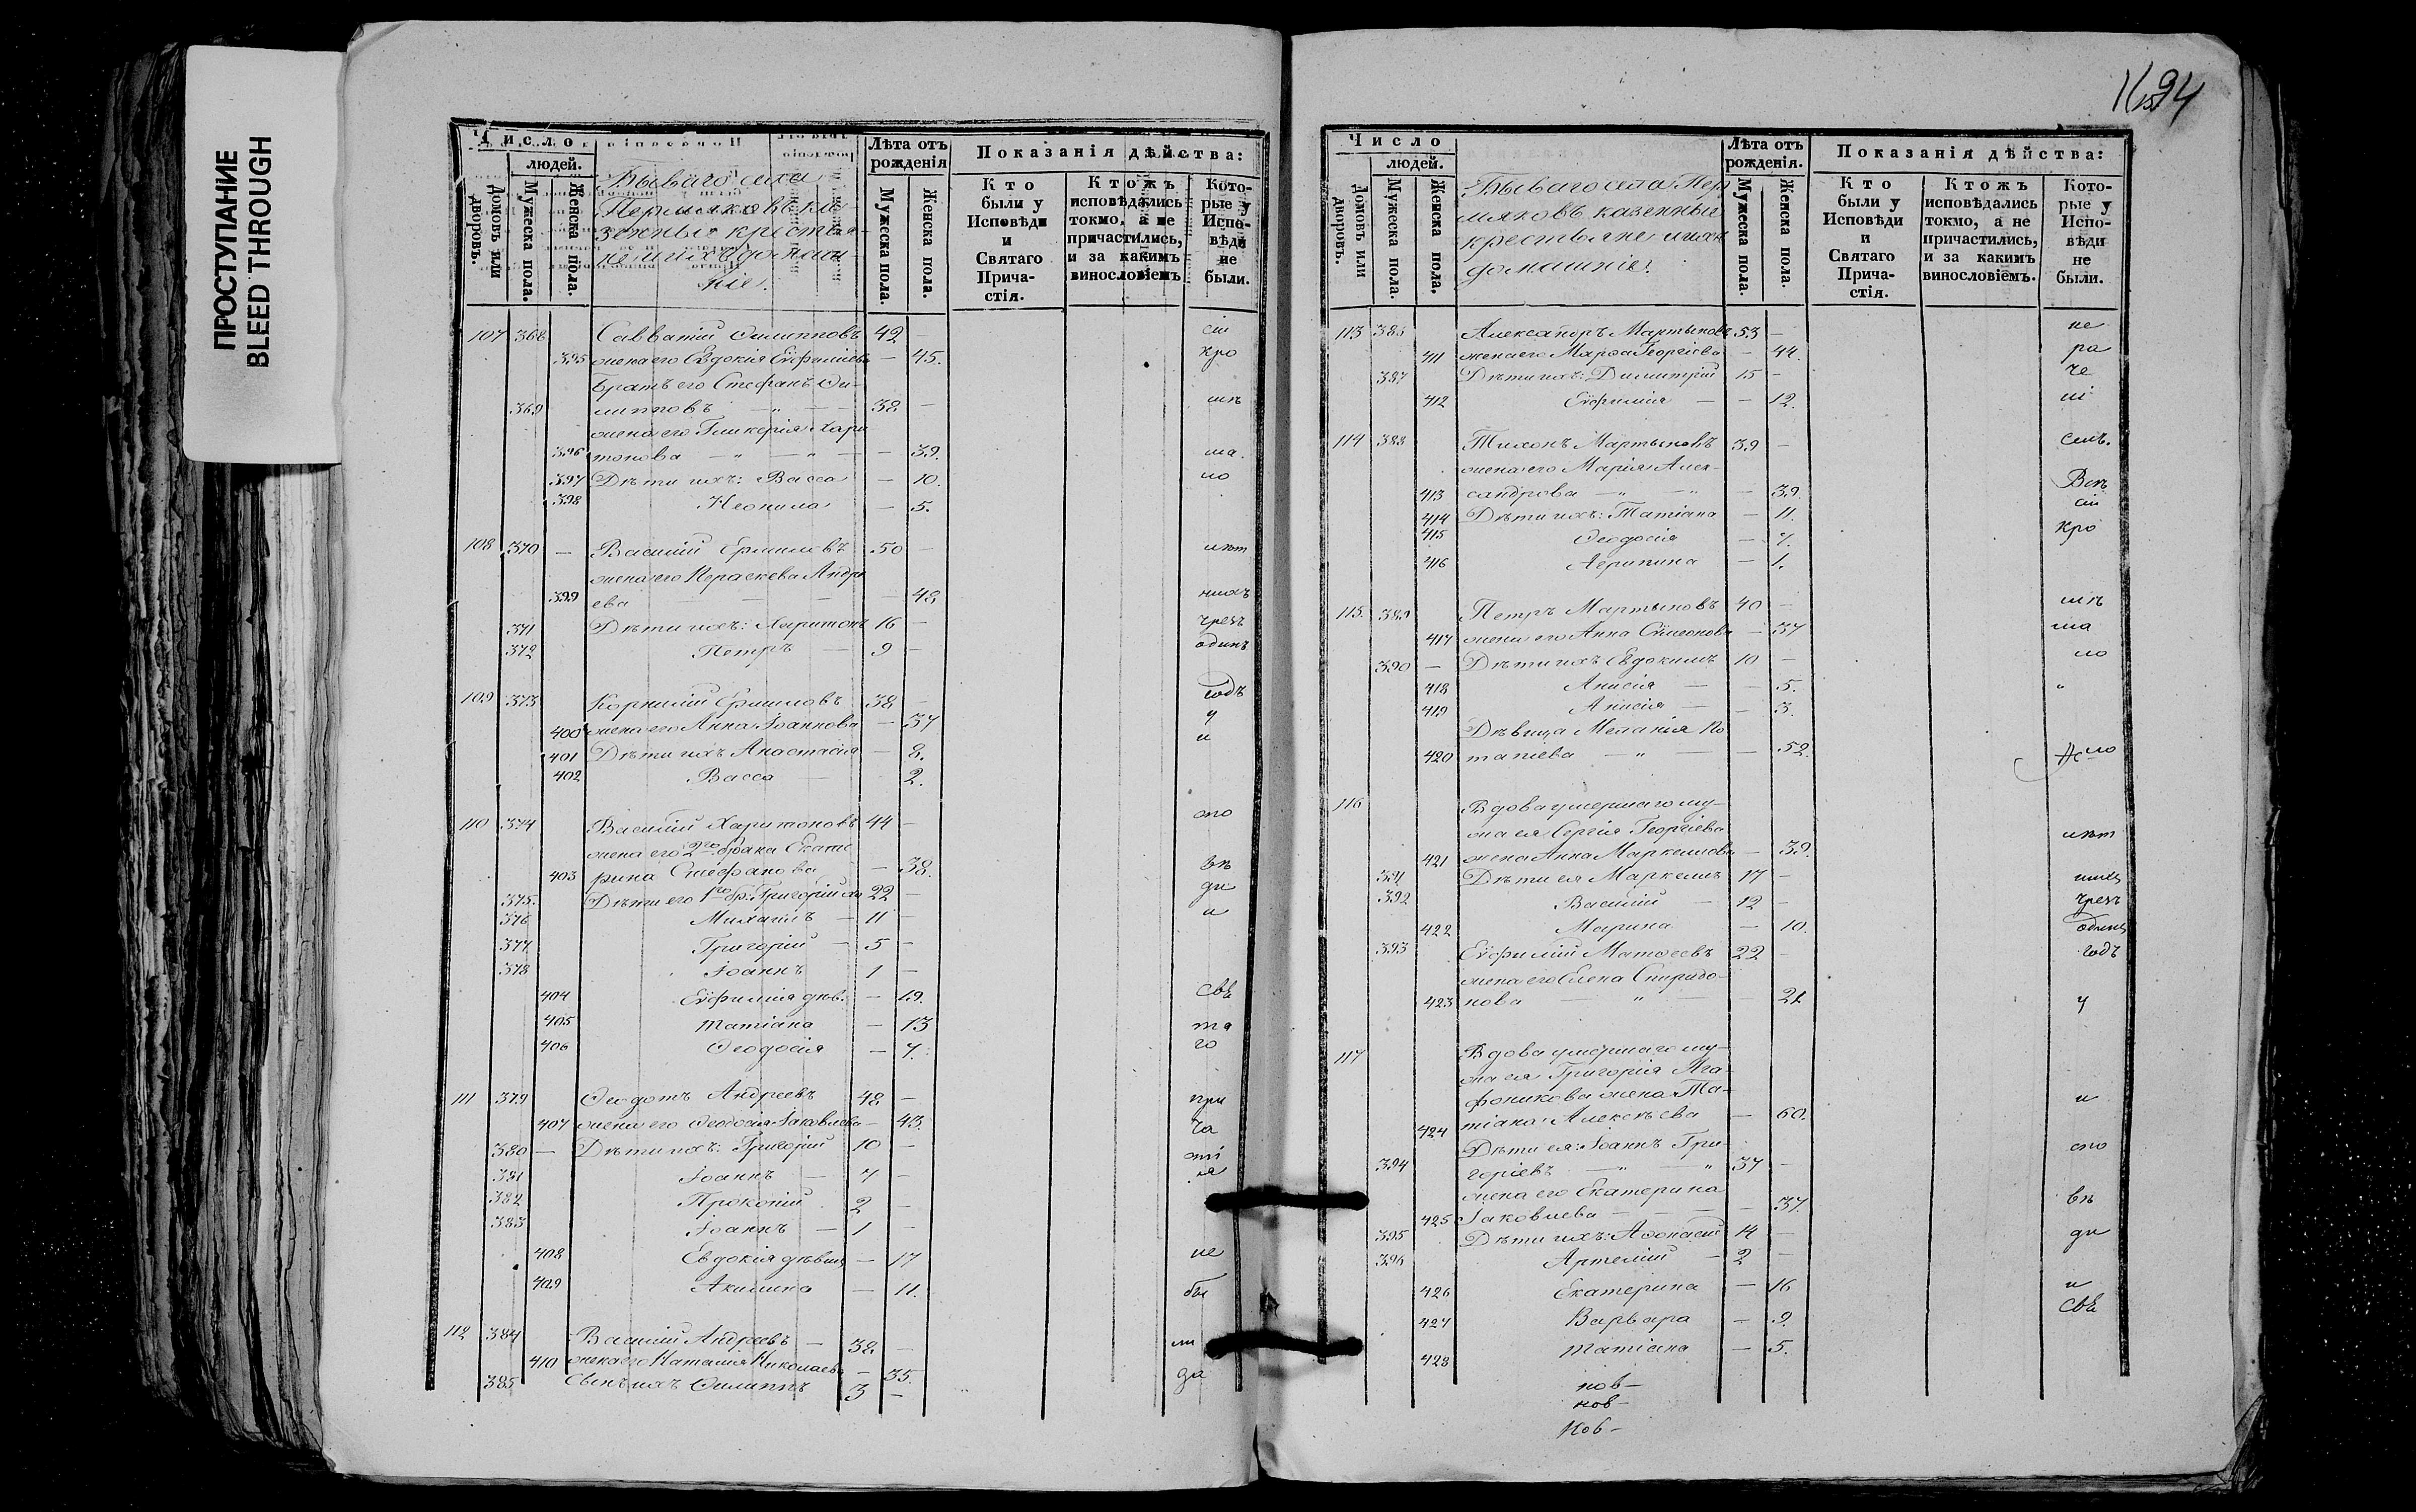 ПРОСТУПАНИЕ
BLEED THROUGH
Число
людей.
Домовъ или дворовъ.
Мужеска пола.
Женска пола.
Бывшаго села
Пермяковъ ка-
зенные крестья-
не и ихъ домаш-
ніе.
Лѣта отъ рожденія
Мужеска пола.
Женска пола.
Показанія дѣйства:
Кто были у Исповѣди и Святаго Причастія.
Ктожъ исповѣдались токмо, а не причастились, и за какимъ винословіемъ
Которые у Исповѣди не были.
107 368 Савватій Филипповъ 42 — сіи
395 жена его Евдокія Евфиміева — 45. кро
братъ его Стефанъ Фи-
369 липповъ — „ — — 38 — мѣ
жена его Гликерія Хари
396 тонова — „ — „ — — 39. ша
397 Дѣти ихъ: Васса — 10. ло
398 Неонила — 5.
108 370 — Василій Ермиловъ 50 — лѣт
жена его Параскева Андре
399 ева — 48 нихъ
371 Дѣти ихъ: Харитонъ 16 — чрезъ
372 Петръ — 9 — одинъ
109 373 Корнилій Ермиловъ 38 — годъ
400 жена его Анна Іоаннова — 37 у
401 Дѣти ихъ Анастасія — 8. и
402 Васса — 2.
110 374 Василій Харитоновъ 44 — спо
жена его 2го брака Екате
403 рина Стефанова — 38. вѣ
375. Дѣти его 1го бр: Григорій 22 — ди
376 Михаилъ — 11 — и
377 Григорій — 5 —
378 Іоаннъ 1 —
404 Евфимія дѣв. — 19. Свѣ
405 Татіана — 13 та
406 Ѳеодосія — 7. го
111 379 Ѳеодотъ Андреевъ 48 — при
407 жена его Ѳеодосія Іаковлева — 43. ча
380 — Дѣти ихъ: Григорій 10 — сті
381 Іоаннъ — 7 — я
382 Прокопій 2 —
383 Іоаннъ — 1 —
408 Евдокія дѣвица — 17 не
409 Акилина — 11. бы
112 384 Василій Андреевъ — 38 — ли
410 жена его Наталія Николаева — 35.
385 Сынъ ихъ Филиппъ 3 — да
1694
Число
людей.
Домовъ или дворовъ.
Мужеска пола.
Женска пола.
Бывшаго села Пер
мяковъ казенные
крестьяне и ихъ
домашніе.
Лѣта отъ рожденія.
Мужеска пола.
Женска пола.
Показанія дѣйства:
Кто были у Исповѣди и Святаго Причастія.
Ктожъ исповѣдались токмо, а не причастились, и за какимъ винословіемъ.
Которые у Исповѣди не были.
113 385 Александръ Мартыновъ 53 — не
411 жена его Марѳа Георгіева — 44. ра
387 Дѣти ихъ: Димитрій 15 — че
412 Евфимія — — 12. ні
114 388 Тихонъ Мартыновъ 39 —
жена его Марія Алек-
413 сандрова — „ — „ — 39.
414 Дѣти ихъ: Татіана — 11. сіи
415 Ѳеодосія — 7. кро
416 Агрипина — 1.
115. 389 Петръ Мартыновъ 40 — мѣ
417 жена его Анна Симеонова — 37 ша
390 — Дѣти ихъ Евдокимъ 10 — ло
418 Анисія — — 5. „
419 Анисія — — 3.
Дѣвица Меланія По
420 тапіева — „ — — 52.
116 Вдова умершаго му-
жа ея Сергія Георгіева лѣт
421 жена Анна Маркелова — 39.
391 Дѣти ея Маркеллъ 17 —
392 Василій — 12 — чрезъ
422 Марина — 10.
393 Евфимій Матѳеевъ 22 — годъ
жена его Елена Спиридо-
423 нова — „ — — 21 у
117 Вдова умершаго му-
жа ея Григорія Ага-
фоникова жена Та- и
424 тіана Алексѣева — 60.
Дѣти ея: Іоаннъ Гри- спо
394 горіевъ — „ — „ 37 —
жена его Екатерина вѣ
425 Іаковлева — — — — 37.
395 Дѣти ихъ: Аѳонасій 14 — ди
396 Артемій — 2 —
426 Екатерина — 16 и
427 Варвара — 9. Свѣ
428 Татіана — 5.
нов—
нов—
Нов—